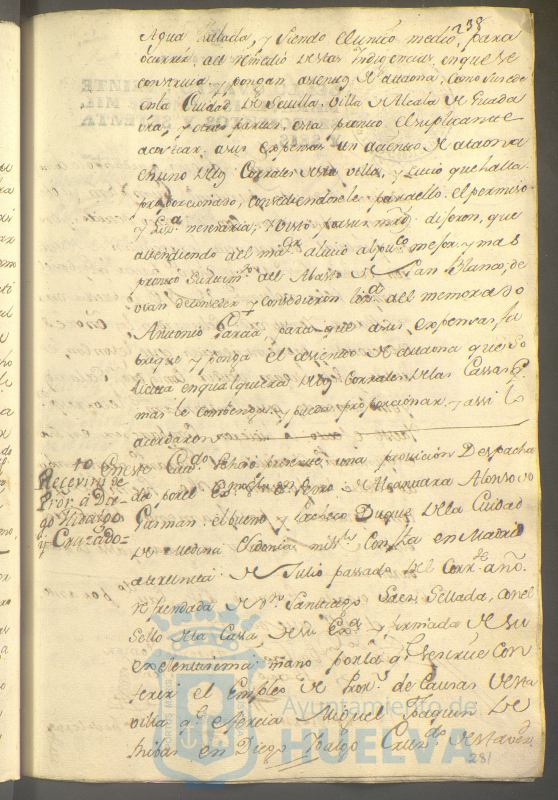 238
Agua salada, y siendo el unico medio, para
ocurrir al remedio destas indigencias, en que se
construia, y pongan asiento de ataona, como sucede
en la Ciudad de Sevilla, villa de Alcala de Guada
ira, y otras partes, esta prompto el suplicante
a costear a sus expensas un asiento de ataona
en uno de los Corrales desta villa, y sitio que halla
proporcionado, concediendosele para ello el permiso
y Liz.a necesaria; Visto por sus mrds. dijeron, que
atendiendo del mayor alivio al pu.co mejor y mas
prompto surtim.to del Abasto de Pan Blanco, de
vian de conceder y concedieron liz.a al memorado
Antonio Garcia para que a sus expensas, fa
brique y ponga el asiento de ataona que so
licita en qualquiera de los Corrales de las Cassas q.
mas le combenga y pueda proporcionar y assi lo
acordaron
Recevim.to de
Pro.r a Die
go Hidalgo
y Cruzado=
En este Cav.do se hizo presente una provision Despacha
da por el Ex.mo Señor D.n Pedro de Alcantara Alonso
Guzman el bueno y Pacheco Duque de la Ciudad
de Medina Sidonia mi s.r Con fha en Madrid
a treinta de Julio passado del Corr.te año
refrendada de D.n Santiago Saenz Sellada, con el
Sello de la Casa, de su Ex.a y firmada de su
excelentissima mano por la q.e se sirve con
ferir el Empleo de Pror. de Causas desta
villa q.e exercia Miguel Joaquin de
Ribas en Diego Hidalgo Cruz.do
281
Ayuntamiento de
HUELVA